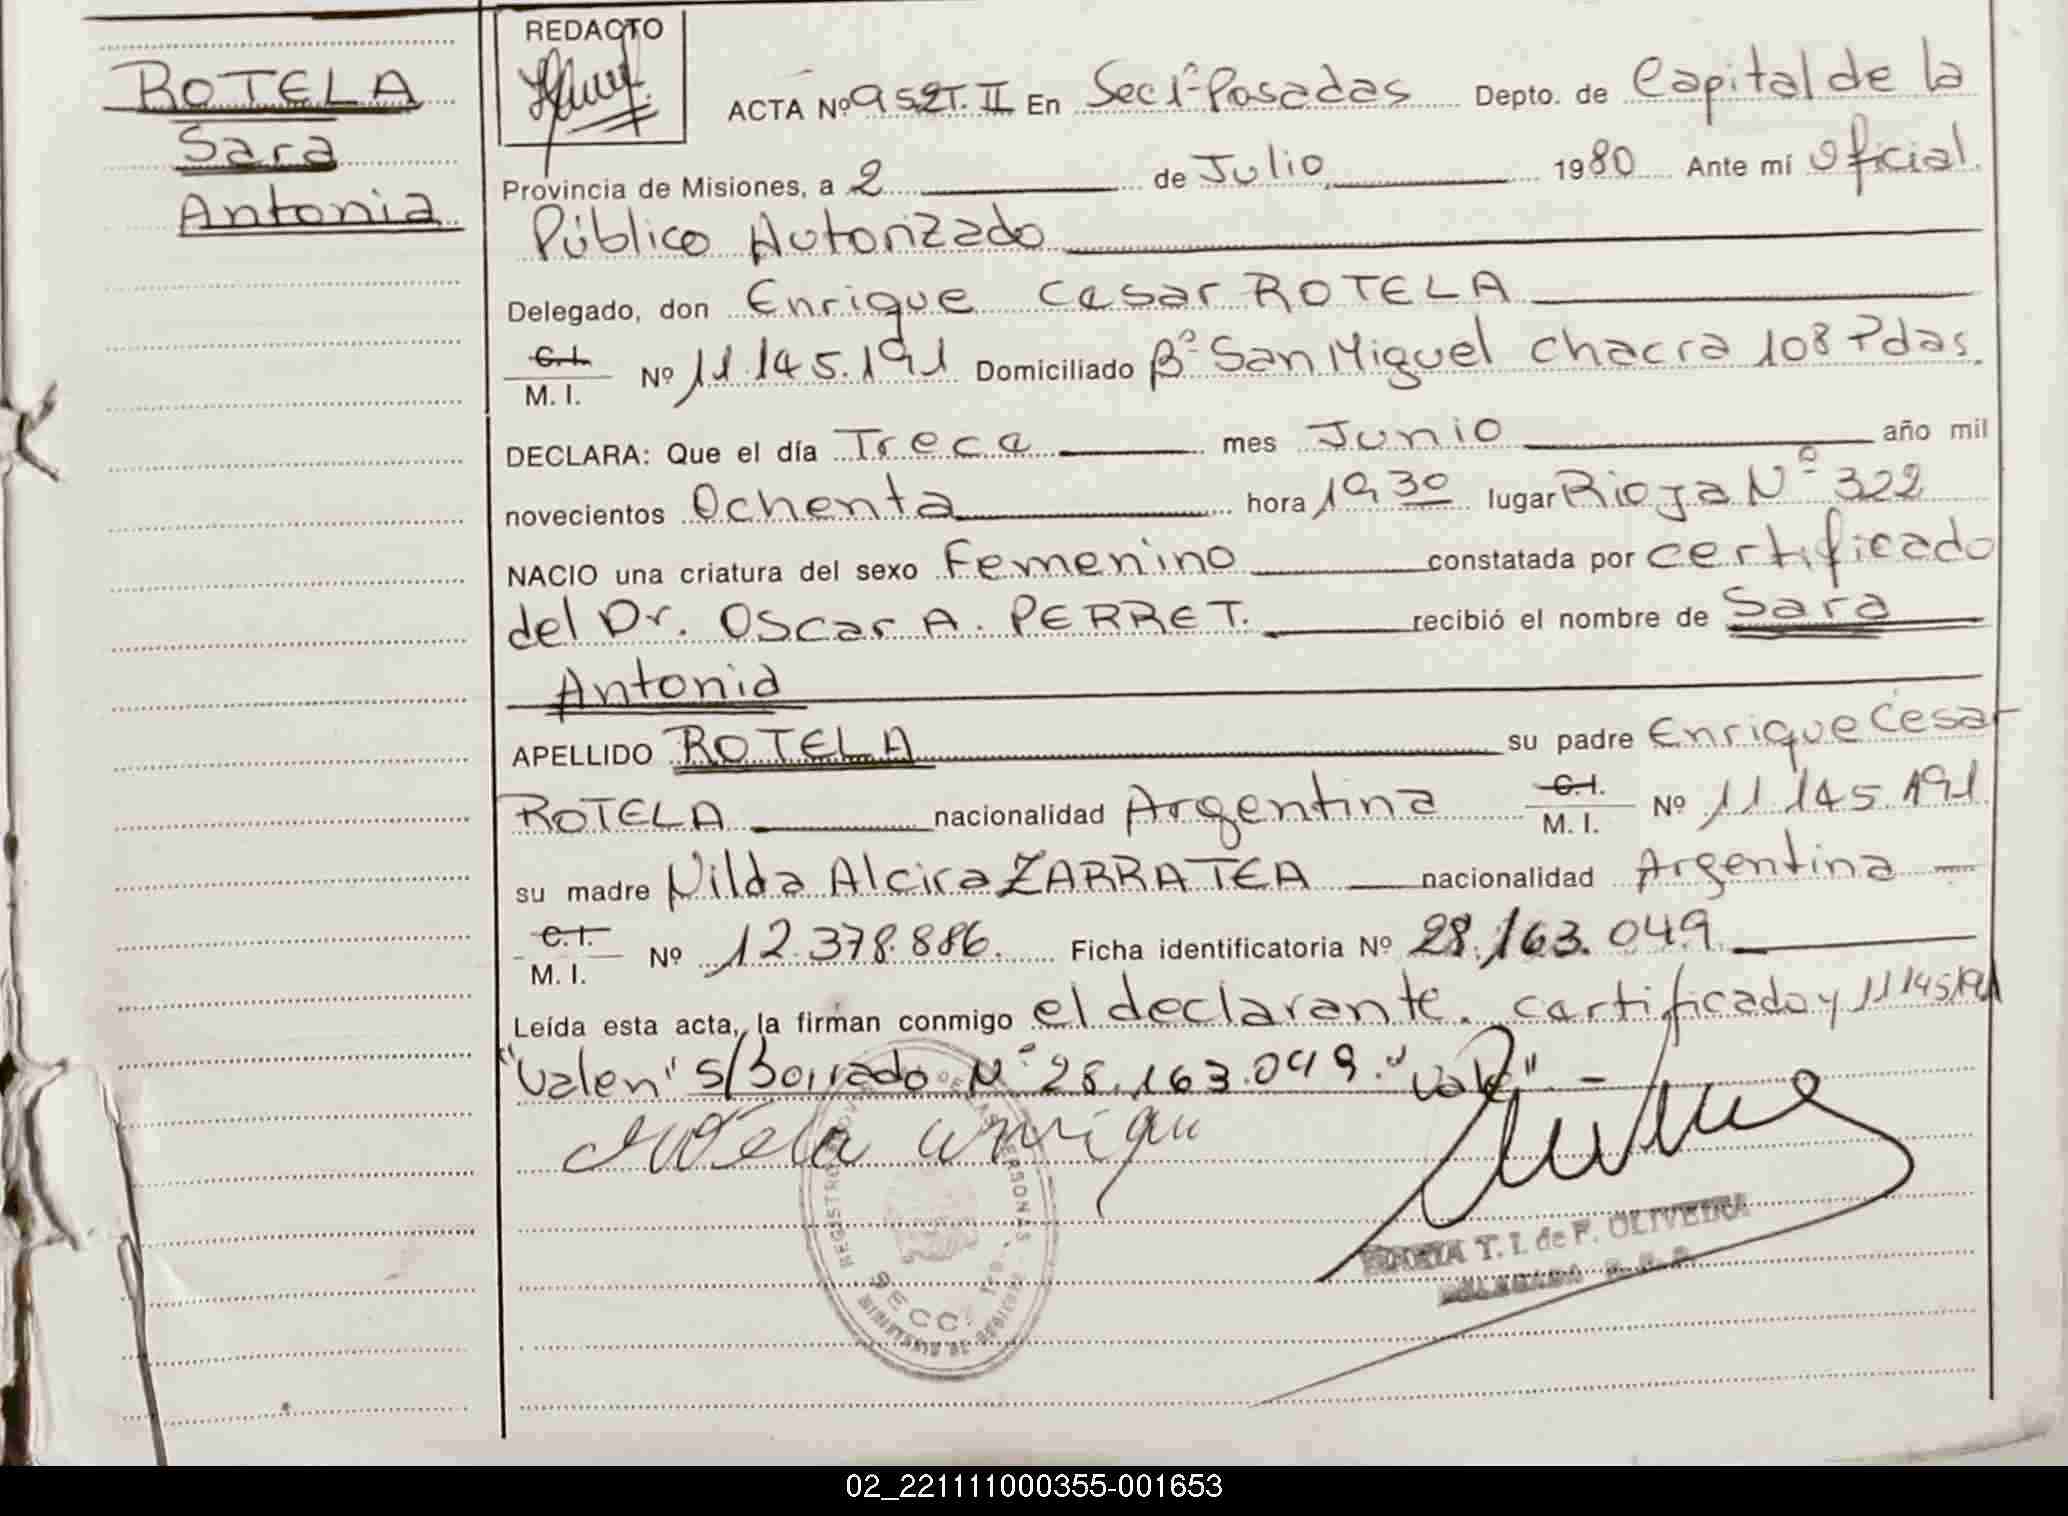 ROTELA
Sara
Antonia
REDACTO
ACTA Nº 952 T. II En Sec 1ª Posadas Depto. de Capital de la
Provincia de Misiones, a 2 de Julio 1980 Ante mí Oficial
Público Autorizado
Delegado, don Enrique Cesar ROTELA
C.I. M. I. Nº 11.145.191 Domiciliado Bº San Miguel chacra 108 Pdas.
DECLARA: Que el día Trece mes Junio año mil
novecientos Ochenta hora 19,30 lugar Rioja Nº 322
NACIO una criatura del sexo Femenino constatada por certificado
del Dr. Oscar A. PERRET. recibió el nombre de Sara
Antonia
APELLIDO ROTELA su padre Enrique Cesar
ROTELA nacionalidad Argentina C.I. M. I. Nº 11.145.191
su madre Nilda Alcira ZARRATEA nacionalidad Argentina
C.I. M. I. Nº 12.378.886. Ficha identificatoria Nº 28.163.049
Leída esta acta, la firman conmigo el declarante. certificado y 11145191
"Valen" s/Borrado Nº 28.163.049. "Vale" -
Rotela Enrique
REGISTRO PROV. DE LAS PERSONAS
SECC.
MINISTERIO DE GOBIERNO
MARIA T. I. de F. OLIVEIRA
DELEGADA
02_221111000355-001653